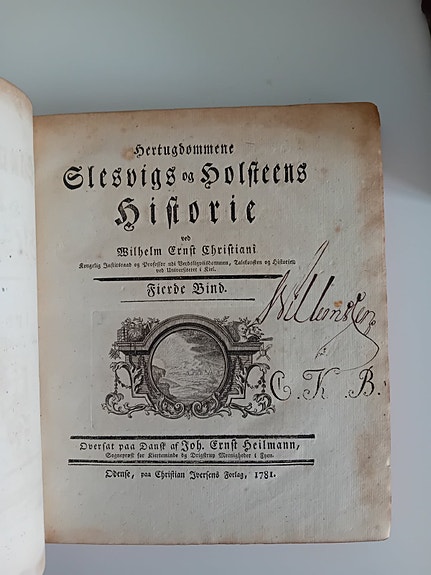 Hertugdømmene
Slesvigs og Holsteens
Historie
ved
Wilhelm Ernst Christiani
Kongelig Justitsraad og Professor udi Veltalenheden, Talekonsten og Historien
ved Universitetet i Kiel.
Fierde Bind.
C. K. B.
Oversat paa Dansk af Joh. Ernst Heilmann,
Sognepræst for Kierteminde og Drigstrup Menigheder i Fyen.
Odense, paa Christian Iversens Forlag, 1781.